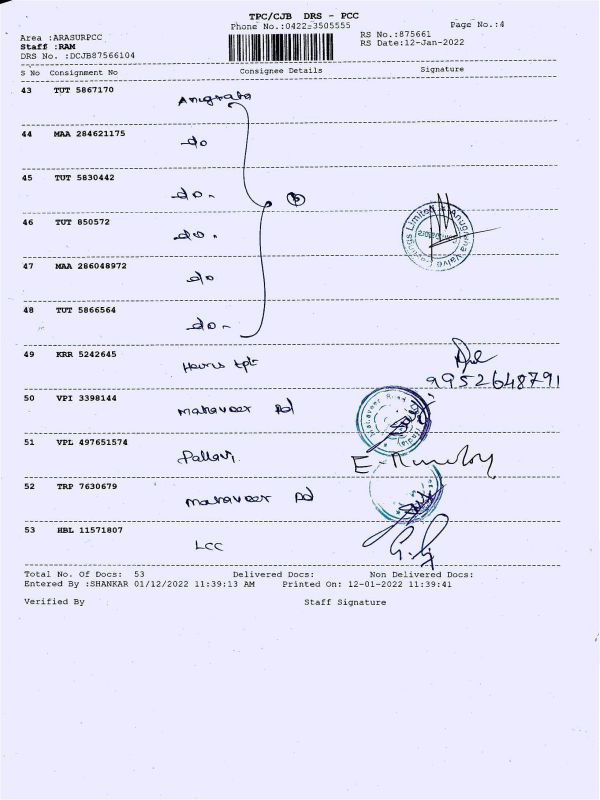 TPC/CJB DRS - PCC
Phone No.:0422-3505555
Page No.:4
Area :ARASURPCC
RS No.:875661
Staff :RAM
RS Date:12-Jan-2022
DRS No. :DCJB87566104
S No Consignment No Consignee Details Signature
43 TUT 5867170
44 MAA 284621175
do
45 TUT 5830442
do.
46 TUT 850572
do.
47 MAA 286048972
do
48 TUT 5866564
do-
49 KRR 5242645
9952648791
50 VPI 3398144
mahaveer Rd
51 VPL 497651574
Pallavi.
52 TRP 7630679
mahaveer Rd
53 HBL 11571807
LCC
Total No. Of Docs: 53 Delivered Docs: Non Delivered Docs:
Entered By :SHANKAR 01/12/2022 11:39:13 AM Printed On: 12-01-2022 11:39:41
Verified By Staff Signature